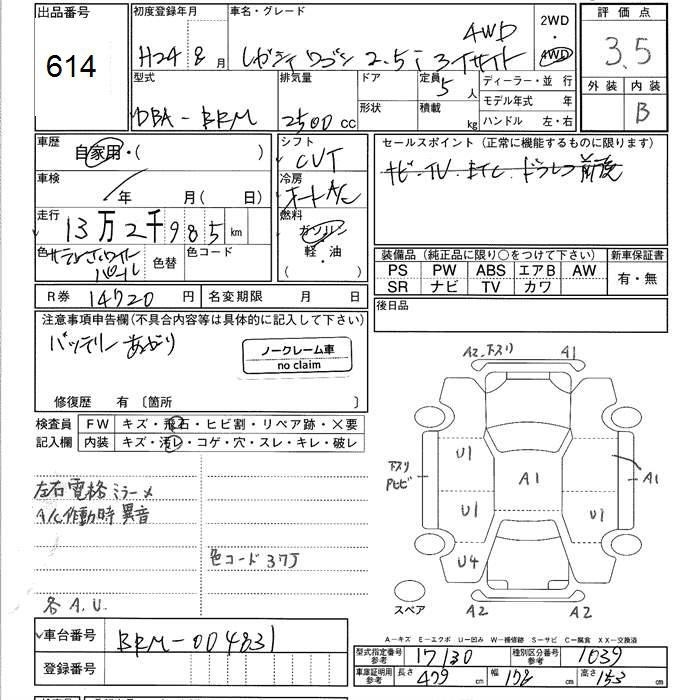 出品番号
614
初度登録年月
H24 8 月
車名・グレード
レガシィ ワゴン 2.5i アイサイト 4WD
2WD
・
4WD
評価点
3.5
外装 内装
B
型式
DBA-BRM
排気量
2500 CC
ドア
形状
定員 5 人
積載 kg
ディーラー・並行
モデル年式 年
ハンドル 左・右
車歴
自家用・( )
車検
年 月( 日)
走行
13万2千985 km
色 サテンホワイトパール
色替
色コード
シフト
CVT
冷房
オートA/C
燃料
ガソリン
軽・油
( )
セールスポイント(正常に機能するものに限ります)
ナビ・TV・ETC・ドラレコ前後
装備品(純正品に限り○をつけて下さい)
PS PW ABS エアB AW
SR ナビ TV カワ
新車保証書
有・無
後日品
R券 14720 円
名変期限 月 日
注意事項申告欄(不具合内容等は具体的に記入して下さい)
バッテリーあがり
ノークレーム車
no claim
修復歴 有 〔箇所 〕
検査員
記入欄
FW キズ・飛石・ヒビ割・リペア跡・×要
内装 キズ・汚レ・コゲ・穴・スレ・キレ・破レ
左右電格ミラーメ
A/C作動時異音
色コード37J
各A.U.
A2 下スリ A1
U1
下スリ
Pヒビ
A1
A1
U1
U1
U4
スペア
A2
A2
A-キズ E-エクボ U-凹み W-補修跡 S-サビ C-腐食 XX-交換済
車台番号
BRM-004831
登録番号
型式指定番号
参考
17130
種別区分番号
参考
1039
車庫証明用
参考
長さ 479 cm
幅 178 cm
高さ 153 cm